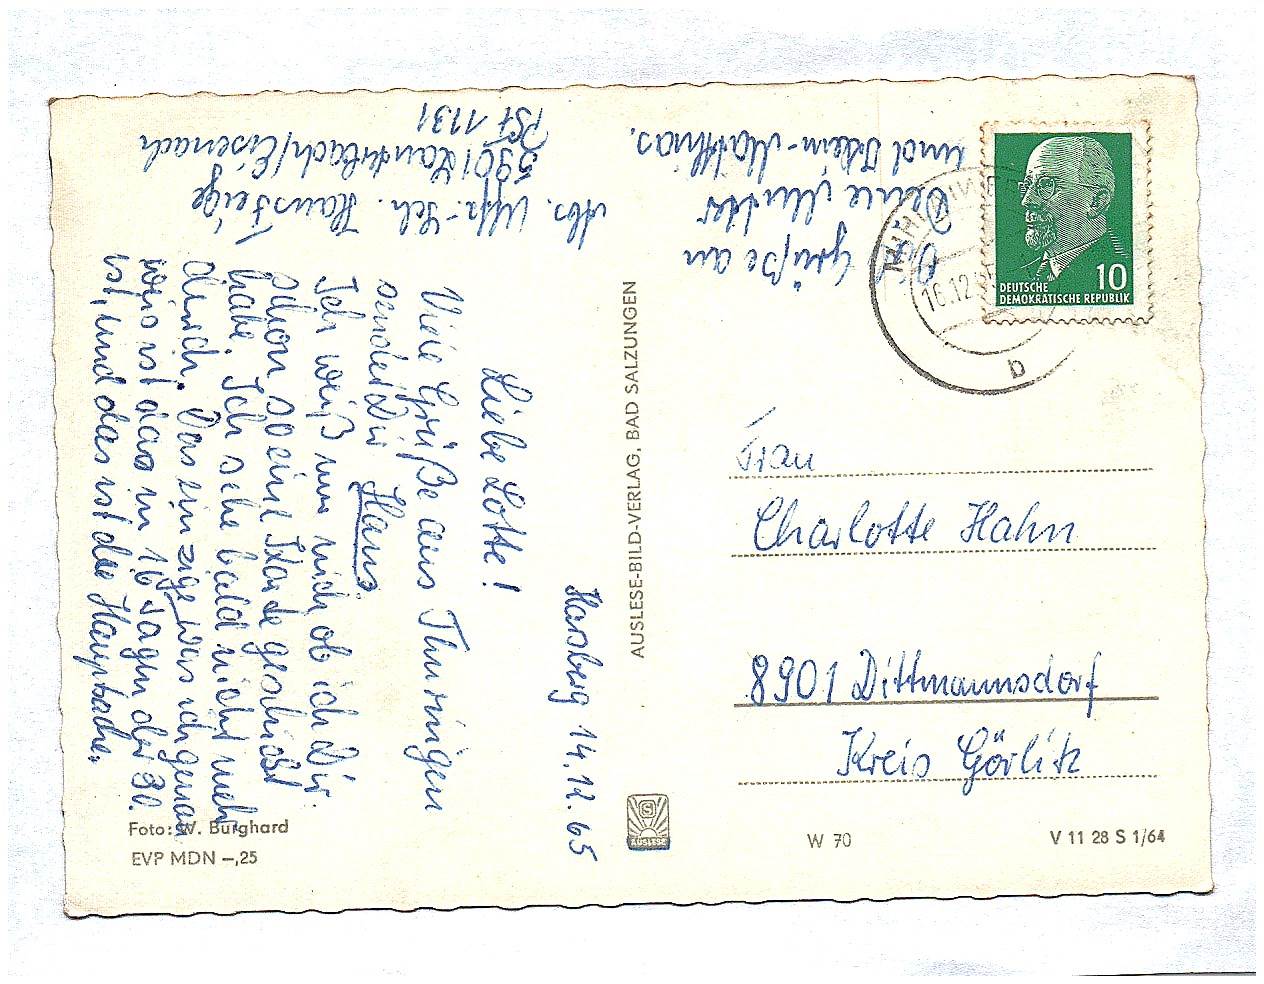 Harsberg 14.12.65
Liebe Lotte!
Viele Grüße aus Thüringen
sendet Dir Hans.
Ich weiß nun nich ob ich Dir
schon so eine Karte geschickt
habe. Ich sehe bald nicht mehr
durch. Das einzige was ich genau
weis ist das in 16 Tagen der 30.
ist, und das ist die Hauptsache.
Abs. Uffz.-Sch. Hans Feige
5901 Lauterbach/Eisenach
PSF 1131
Grüße an
Deine Mutter
und Klein-Matthias.
AUSLESE-BILD-VERLAG, BAD SALZUNGEN
AUSLESE
10
DEUTSCHE
DEMOKRATISCHE REPUBLIK
16.12
b
Frau
Charlotte Hahn
8901 Dittmannsdorf
Kreis Görlitz
Foto: W. Burghard
EVP MDN –,25
W 70
V 11 28 S 1/64